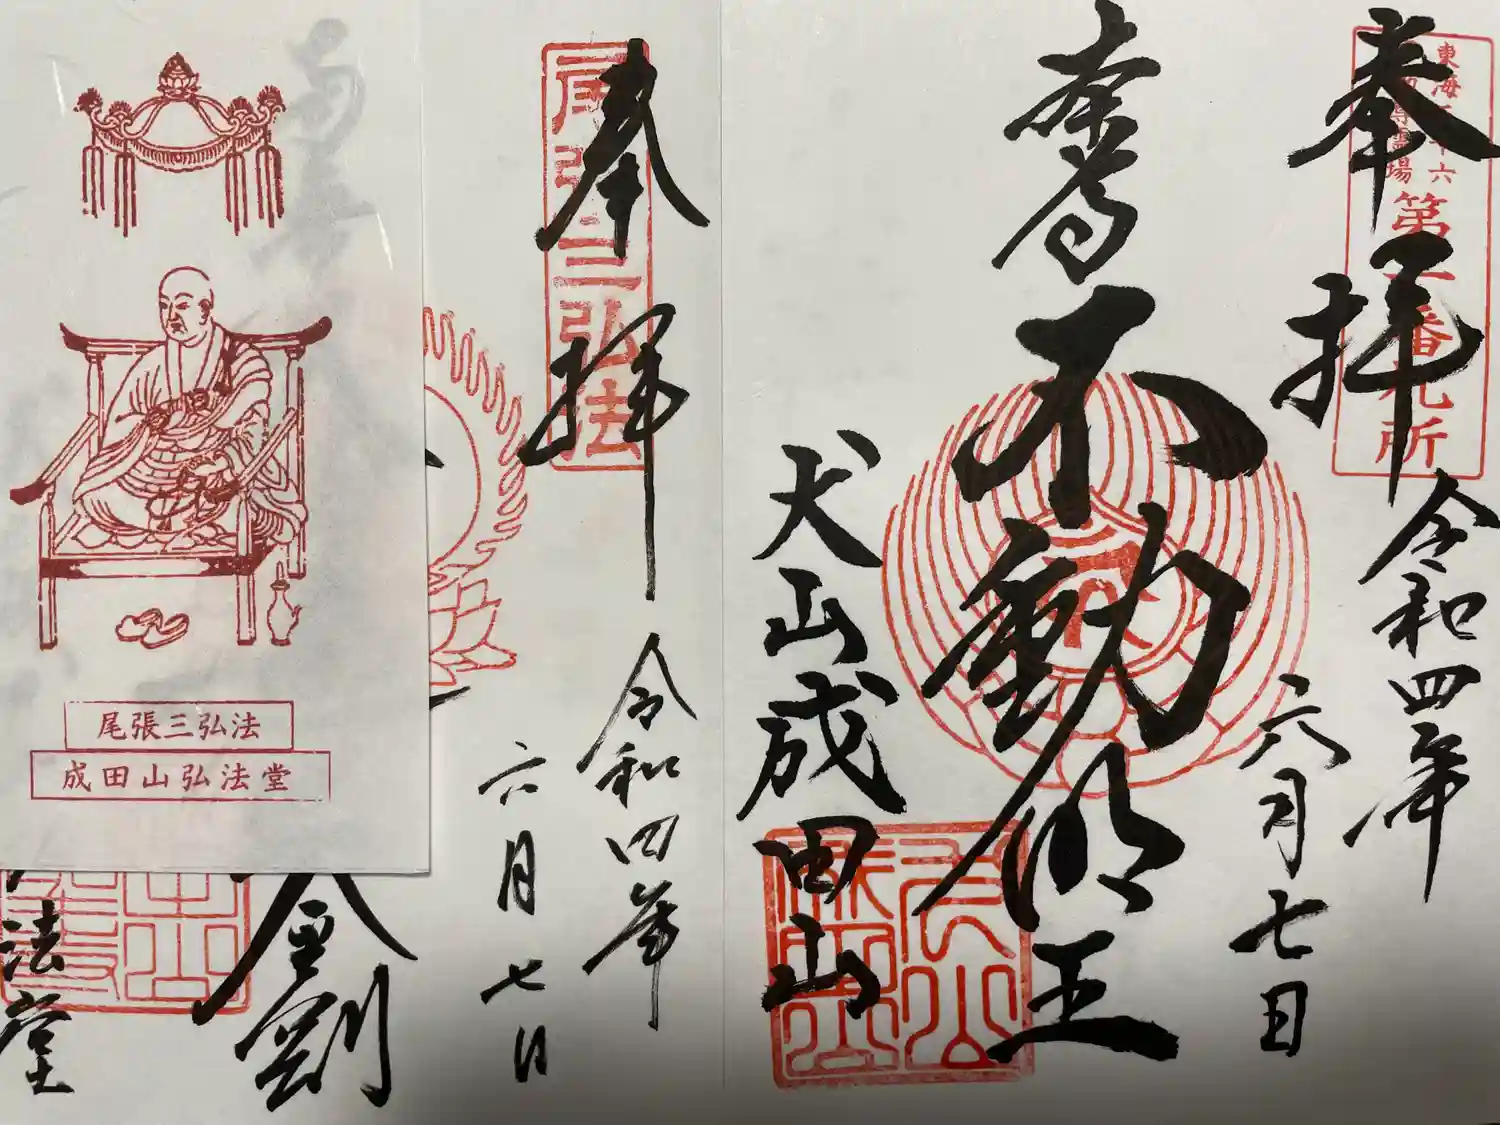 奉拝
東海三十六
不動尊霊場
第一番札所
令和四年
六月七日
不動明王
犬山成田山
奉拝
尾張三弘法
令和四年
六月七日
金剛
法堂
尾張三弘法
成田山弘法堂